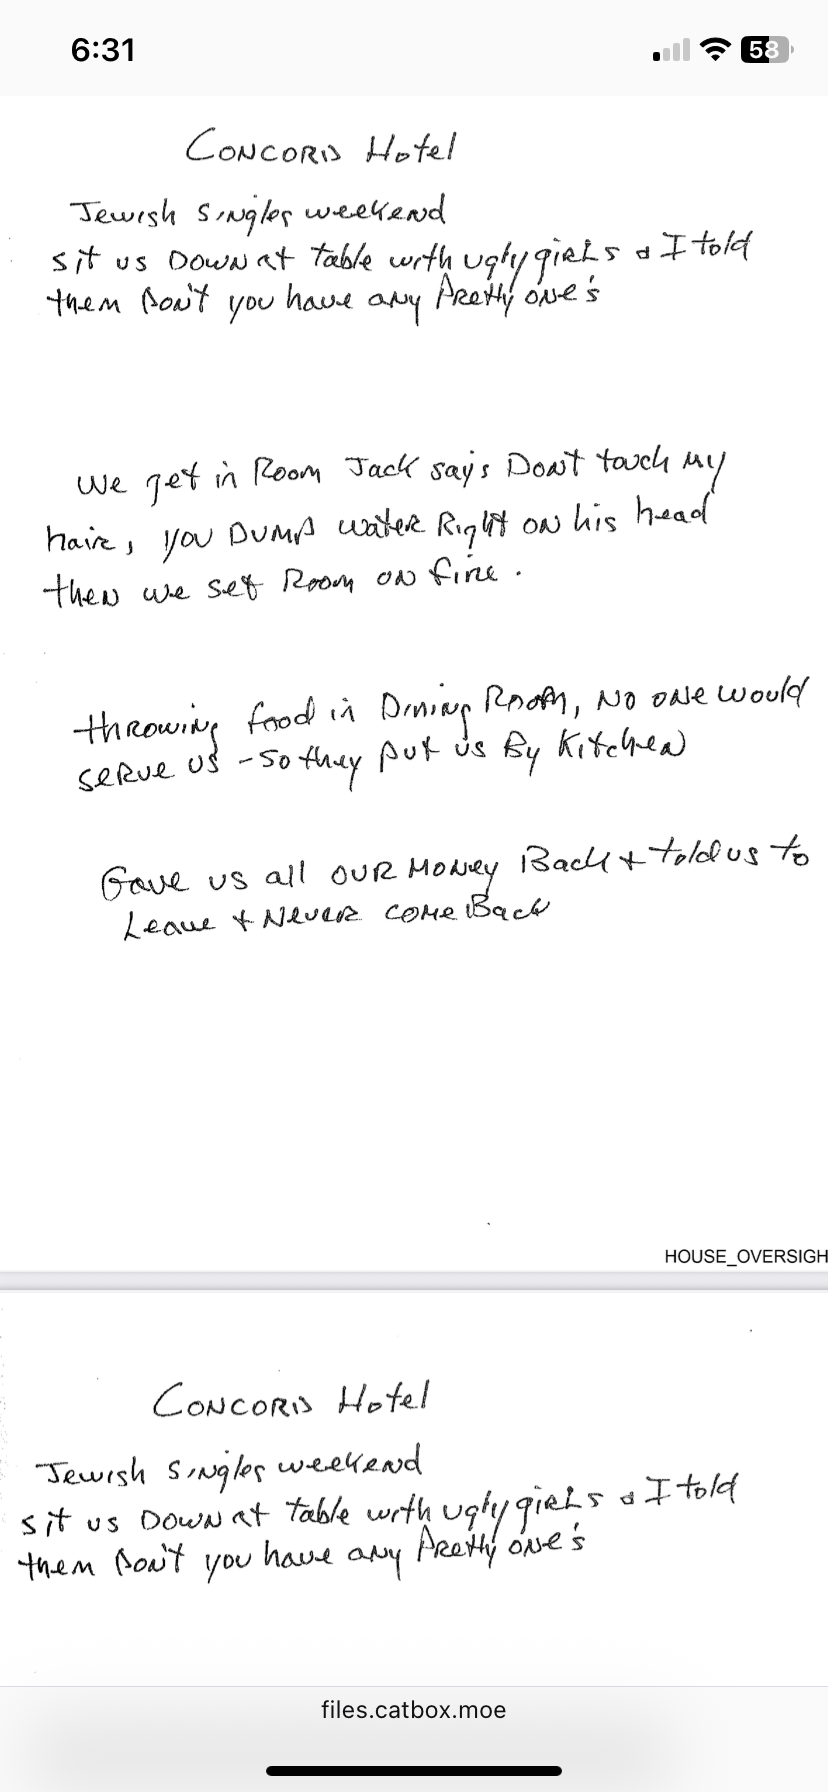 6:31
58
CONCORD Hotel
Jewish Singles weekend
sit us DOWN at table with ugly girls & I told
them Don't you have any Pretty one's
We get in Room Jack say's Dont touch my
hair, you DUMP water Right ON his head
then we set Room ON fire.
throwing food in Dining Room, NO ONE would
serve us - so they put us By Kitchen
Gave us all OUR Money Back + told us to
Leave + Never come Back
HOUSE_OVERSIGH
CONCORD Hotel
Jewish Singles weekend
sit us DOWN at table with ugly girls & I told
them Don't you have any Pretty one's
files.catbox.moe